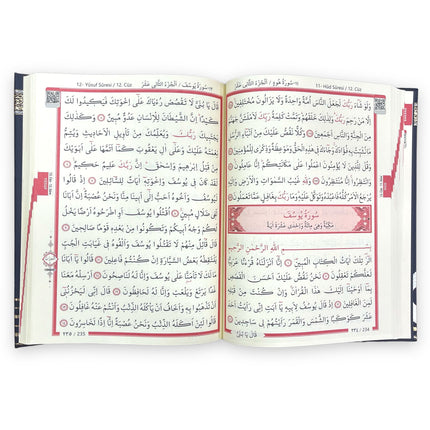 11- Hûd Sûresi / 12. Cüz
سُورَةُ هُودٍ / اَلْجُزْءُ الثَّانِي عَشَرَ
وَلَوْ شَاءَ رَبُّكَ لَجَعَلَ النَّاسَ اُمَّةً وَاحِدَةً وَلَا يَزَالُونَ مُخْتَلِفِينَ
اِلَّا مَنْ رَحِمَ رَبُّكَ وَلِذٰلِكَ خَلَقَهُمْ وَتَمَّتْ كَلِمَةُ رَبِّكَ لَاَمْلَـَٔنَّ جَهَنَّمَ
مِنَ الْجِنَّةِ وَالنَّاسِ اَجْمَعِينَ وَكُلًّا نَقُصُّ عَلَيْكَ مِنْ اَنْبَاءِ الرُّسُلِ مَا
نُثَبِّتُ بِهِ فُؤَادَكَ وَجَاءَكَ فِي هٰذِهِ الْحَقُّ وَمَوْعِظَةٌ وَذِكْرٰى لِلْمُؤْمِنِينَ
وَقُلْ لِلَّذِينَ لَا يُؤْمِنُونَ اعْمَلُوا عَلٰى مَكَانَتِكُمْ اِنَّا عَامِلُونَ
وَانْتَظِرُوا اِنَّا مُنْتَظِرُونَ وَلِلّٰهِ غَيْبُ السَّمٰوَاتِ وَالْاَرْضِ وَاِلَيْهِ
يُرْجَعُ الْاَمْرُ كُلُّهُ فَاعْبُدْهُ وَتَوَكَّلْ عَلَيْهِ وَمَا رَبُّكَ بِغَافِلٍ عَمَّا تَعْمَلُونَ
سُورَةُ يُوسُفَ
مَكِّيَّةٌ وَهِيَ مِائَةٌ وَاِحْدٰى عَشْرَةَ اٰيَةً
بِسْمِ اللّٰهِ الرَّحْمٰنِ الرَّحِيمِ
الٓرٰ تِلْكَ اٰيَاتُ الْكِتَابِ الْمُبِينِ اِنَّا اَنْزَلْنَاهُ قُرْاٰنًا عَرَبِيًّا
لَعَلَّكُمْ تَعْقِلُونَ نَحْنُ نَقُصُّ عَلَيْكَ اَحْسَنَ الْقَصَصِ بِمَا
اَوْحَيْنَا اِلَيْكَ هٰذَا الْقُرْاٰنَ وَاِنْ كُنْتَ مِنْ قَبْلِهِ
لَمِنَ الْغَافِلِينَ اِذْ قَالَ يُوسُفُ لِاَبِيهِ يَا اَبَتِ اِنِّي رَاَيْتُ اَحَدَ
عَشَرَ كَوْكَبًا وَالشَّمْسَ وَالْقَمَرَ رَاَيْتُهُمْ لِي سَاجِدِينَ
قَالَ يَا بُنَيَّ
٢٣٤ / 234
12- Yûsuf Sûresi / 12. Cüz
سُورَةُ يُوسُفَ / اَلْجُزْءُ الثَّانِي عَشَرَ
قَالَ يَا بُنَيَّ لَا تَقْصُصْ رُءْيَاكَ عَلٰى اِخْوَتِكَ فَيَكِيدُوا لَكَ
كَيْدًا اِنَّ الشَّيْطَانَ لِلْاِنْسَانِ عَدُوٌّ مُبِينٌ وَكَذٰلِكَ
يَجْتَبِيكَ رَبُّكَ وَيُعَلِّمُكَ مِنْ تَأْوِيلِ الْاَحَادِيثِ وَيُتِمُّ
نِعْمَتَهُ عَلَيْكَ وَعَلٰى اٰلِ يَعْقُوبَ كَمَا اَتَمَّهَا عَلٰى اَبَوَيْكَ
مِنْ قَبْلُ اِبْرٰهِيمَ وَاِسْحٰقَ اِنَّ رَبَّكَ عَلِيمٌ حَكِيمٌ
لَقَدْ كَانَ فِي يُوسُفَ وَاِخْوَتِهِ اٰيَاتٌ لِلسَّائِلِينَ اِذْ قَالُوا
لَيُوسُفُ وَاَخُوهُ اَحَبُّ اِلٰى اَبِينَا مِنَّا وَنَحْنُ عُصْبَةٌ اِنَّ اَبَانَا
لَفِي ضَلَالٍ مُبِينٍ اُقْتُلُوا يُوسُفَ اَوِ اطْرَحُوهُ اَرْضًا يَخْلُ
لَكُمْ وَجْهُ اَبِيكُمْ وَتَكُونُوا مِنْ بَعْدِهِ قَوْمًا صَالِحِينَ
قَالَ قَائِلٌ مِنْهُمْ لَا تَقْتُلُوا يُوسُفَ وَاَلْقُوهُ فِي غَيَابَتِ الْجُبِّ
يَلْتَقِطْهُ بَعْضُ السَّيَّارَةِ اِنْ كُنْتُمْ فَاعِلِينَ قَالُوا يَا اَبَانَا
مَا لَكَ لَا تَأْمَنَّا عَلٰى يُوسُفَ وَاِنَّا لَهُ لَنَاصِحُونَ اَرْسِلْهُ مَعَنَا
غَدًا يَرْتَعْ وَيَلْعَبْ وَاِنَّا لَهُ لَحَافِظُونَ قَالَ اِنِّي لَيَحْزُنُنِي
اَنْ تَذْهَبُوا بِهِ وَاَخَافُ اَنْ يَأْكُلَهُ الذِّئْبُ وَاَنْتُمْ عَنْهُ غَافِلُونَ
قَالُوا لَئِنْ اَكَلَهُ الذِّئْبُ وَنَحْنُ عُصْبَةٌ اِنَّا اِذًا لَخَاسِرُونَ
٢٣٥ / 235